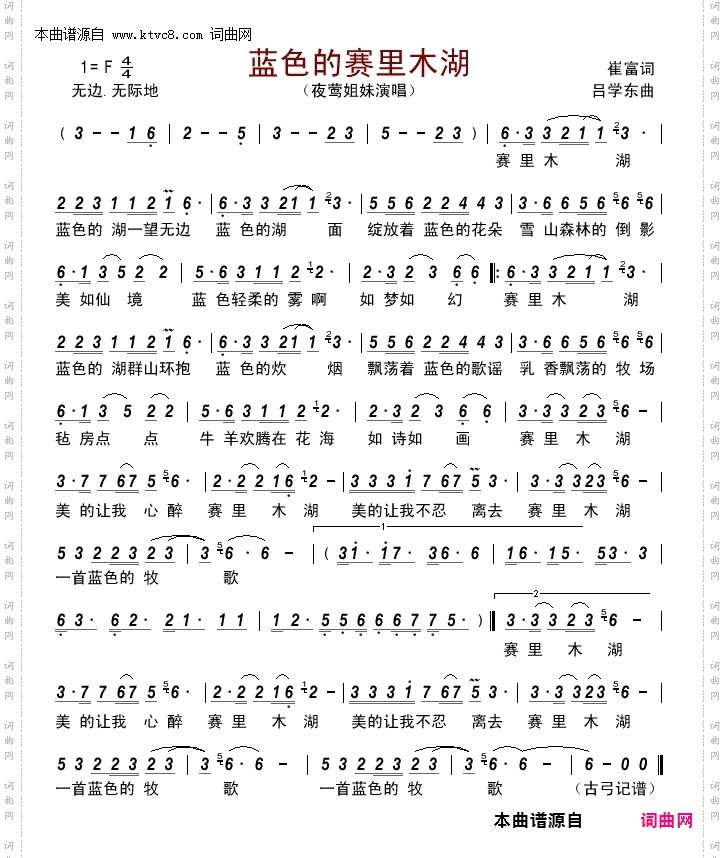 本曲谱源自 www.ktvc8.com 词曲网
蓝色的赛里木湖
1= F 4/4
崔富词
无边.无际地
(夜莺姐妹演唱)
吕学东曲
( 3 - - 1 6 | 2 - - 5 | 3 - - 2 3 | 5 - - 2 3 ) | 6 · 3 3 2 1 1 2 3 ·
赛 里 木 湖
2 2 3 1 1 2 1 6 · | 6 · 3 3 2 1 1 2 3 · | 5 5 6 2 2 4 4 3 | 3 · 6 6 5 6 5 6 5 6
蓝色的 湖一望无边 蓝 色的湖 面 绽放着 蓝色的花朵 雪 山森林的 倒 影
6 · 1 3 5 2 2 | 5 · 6 3 1 1 2 1 2 · | 2 · 3 2 3 6 6 |: 6 · 3 3 2 1 1 2 3 ·
美 如仙 境 蓝 色轻柔的 雾 啊 如 梦如 幻 赛 里 木 湖
2 2 3 1 1 2 1 6 · | 6 · 3 3 2 1 1 2 3 · | 5 5 6 2 2 4 4 3 | 3 · 6 6 5 6 5 6 5 6
蓝色的 湖群山环抱 蓝 色的炊 烟 飘荡着 蓝色的歌谣 乳 香飘荡的 牧 场
6 · 1 3 5 2 2 | 5 · 6 3 1 1 2 1 2 | 2 · 3 2 3 6 6 | 3 · 3 3 2 3 5 6 -
毡 房点 点 牛 羊欢腾在 花 海 如 诗如 画 赛 里 木 湖
3 · 7 7 6 7 5 5 6 · | 2 · 2 2 1 6 1 2 - | 3 3 3 1 7 6 7 5 3 | 3 · 3 3 2 3 5 6 -
美 的让我 心 醉 赛 里 木 湖 美的让我不忍 离去 赛 里 木 湖
1
5 3 2 2 3 2 3 | 3 5 6 · 6 - | ( 3 1 · 1 7 · 3 6 · 6 | 1 6 · 1 5 · 5 3 · 3
一首蓝色的 牧 歌
2
6 3 · 6 2 · 2 1 · 1 1 | 1 2 · 5 5 6 6 6 7 7 7 5 · ) :| 3 · 3 3 2 3 5 6 -
赛 里 木 湖
3 · 7 7 6 7 5 5 6 · | 2 · 2 2 1 6 1 2 - | 3 3 3 1 7 6 7 5 3 | 3 · 3 3 2 3 5 6 -
美 的让我 心 醉 赛 里 木 湖 美的让我不忍 离去 赛 里 木 湖
5 3 2 2 3 2 3 | 3 5 6 · 6 - | 5 3 2 2 3 2 3 | 3 5 6 · 6 - | 6 - 0 0 ‖
一首蓝色的 牧 歌 一首蓝色的 牧 歌 (古弓记谱)
本曲谱源自 词曲网